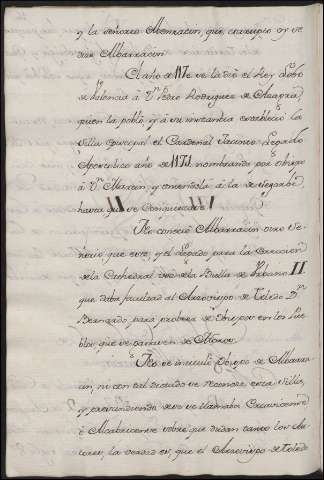 y la señoreo Abenracin, que corrupto oy se
dice Albarracin.
El año de 117. se la dió el Rey Lobo
de Valencia á Dn. Pedro Rodriguez de Azagra,
quien la pobló, y á su instancia erigió la
Silla Episcopal el Cardenal Jacinto Legado
Apostolico año de 1171. nombrando por obispo
á Dn. Martin, y uniendola á la de Segorbe,
hasta que se Conquistase.
No conoció Albarracin otro Se-
ñorio que este, y el Legado para la Creacion
de la Cathedral usó de la Bulla de Urbano II
que daba facultad al Arzobispo de Toledo Dn.
Bernardo para proveer de obispos en los Pue-
blos que se ganasen de Moros.
No se intituló Obispo de Albarra-
cin, ni con tal dictado se reconoce esta Silla,
y pretendiendo se llamaba
ó Alcabricense sobre que dudan tanto los Au-
tores, la verdad es, que el Arzobispo de Toledo